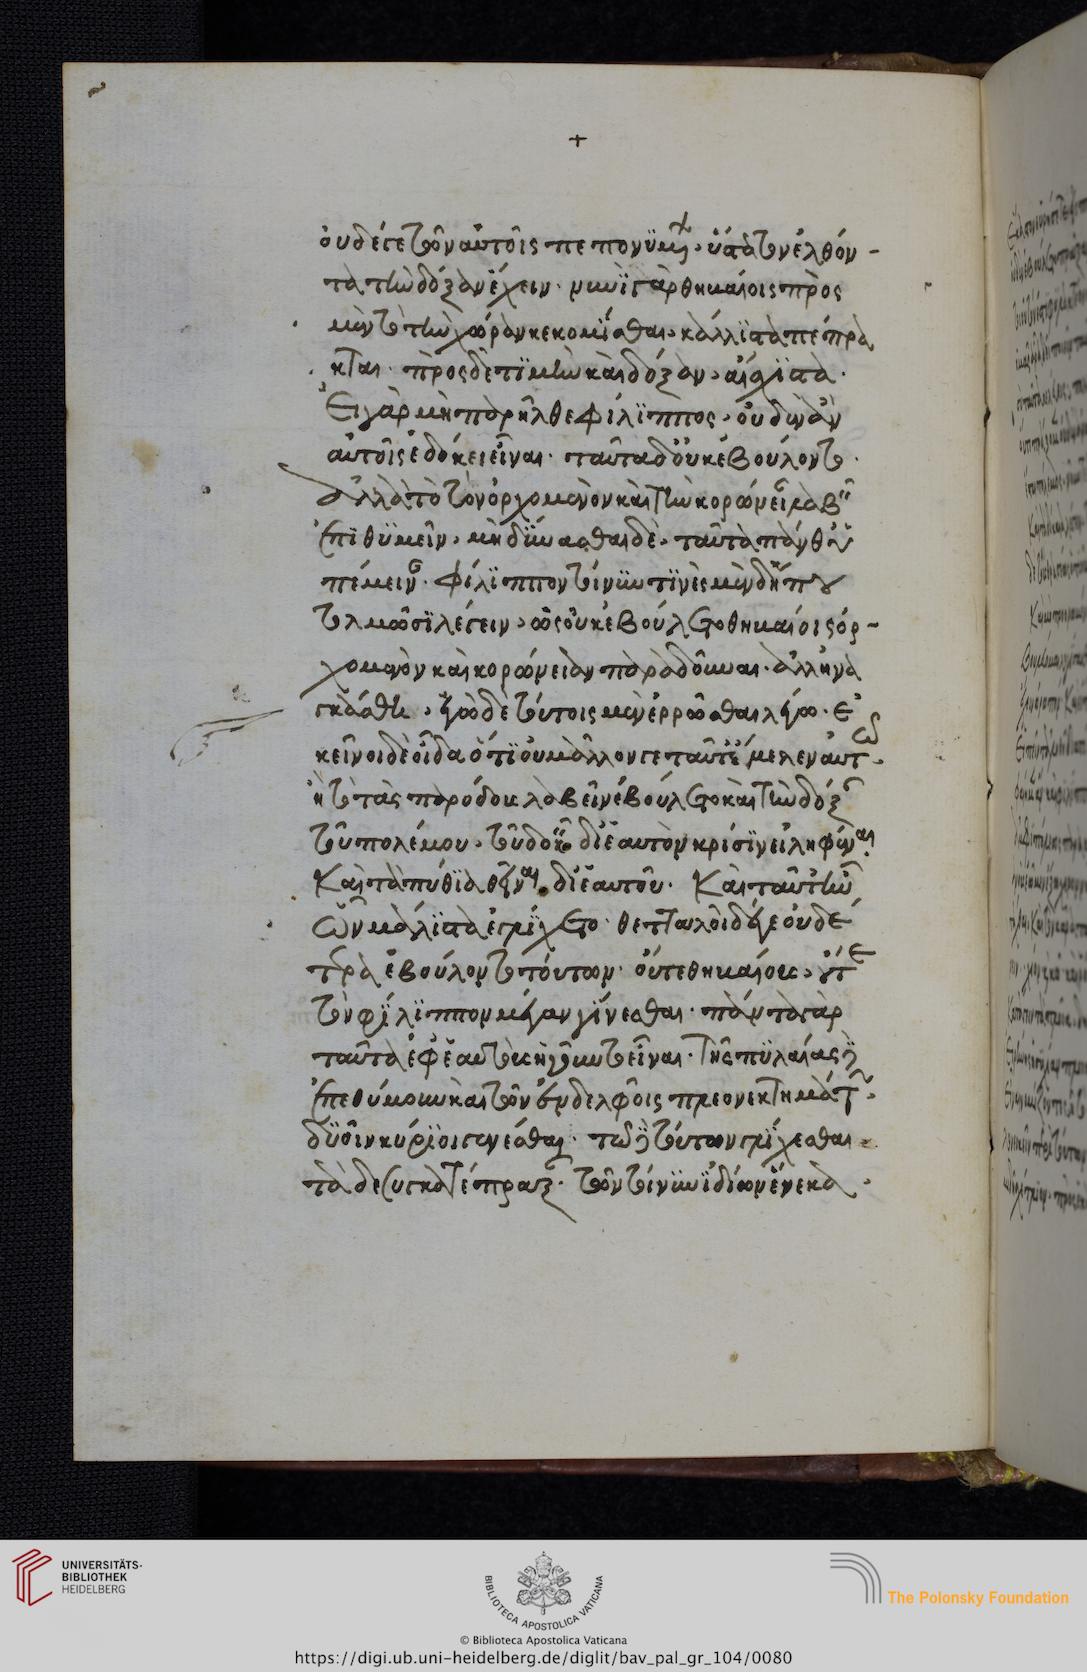 +
οὐδέ γε τῶν αὐτοῖς πεπονημ ὕστατον ἐλθόν-
τα τὴν δόξαν ἔχειν· νυνὶ γὰρ θηβαίοις πρὸς
μὲν τὸ τὴν χώραν κεκομίσθαι, κάλλιστα πέπρα
κται· πρὸς δὲ τιμὴν καὶ δόξαν, αἴσχιστα·
Εἰ γὰρ μὴ παρῆλθε φίλιππος, οὐδὲν ἂν
αὐτοῖς ἐδόκει εἶναι· ταῦτα δ' οὐκ ἐβούλοντο·
ἀλλὰ τὸ τὸν ὀρχομενὸν καὶ τὴν κορώνειαν λαβεῖν
ἐπιθυμεῖν, μὴ δύνασθαι δὲ, ταῦτα πάνθ' ὑ
πέμειναν· Φίλιππον τοίνυν τινὲς μὲν δήπου
τολμῶσι λέγειν, ὡς οὐκ ἐβούλετο θηβαίοις ὀρ-
χομενὸν καὶ κορώνειαν παραδοῦναι· ἀλλ' ἠνα
γκάσθη, ἐγὼ δὲ τούτοις μὲν ἐρρῶσθαι λέγω· ἐ
κεῖνο δὲ οἶδα ὅτι οὐ μᾶλλόν γε ταῦτ' ἔμελεν αὐτῶ·
ἢ τὸ τὰς παρόδους λαβεῖν ἐβούλετο καὶ τὴν δόξαν
τοῦ πολέμου, τοῦ δοκεῖν δι' ἑαυτὸν κρίσιν εἰληφέναι
Καὶ τὰ πύθια θεῖναι δι' ἑαυτοῦ· Καὶ ταῦτ' ἦν
ὧν μάλιστα ἐγλίχετο· θετταλοὶ δέ γε οὐδέ
τερα ἐβούλοντο τούτων· οὔτε θηβαίους, οὔτε
τὸν φίλιππον μέγαν γίνεσθαι· πάντα γὰρ
ταῦτα ἐφ' ἑαυτοὺς ἡγοῦντο εἶναι· τῆς πυλαίας δ'
ἐπεθύμουν καὶ τῶν ἐν δελφοῖς πλεονεκτημάτων,
δυοῖν κυρίοι γενέσθαι· τῷ δὲ τούτων γλίχεσθαι
τάδε συγκατέπραξαν· τῶν τοίνυν ἰδίων ἕνεκα.
UNIVERSITÄTS-
BIBLIOTHEK
HEIDELBERG
BIBLIOTECA APOSTOLICA VATICANA
The Polonsky Foundation
© Biblioteca Apostolica Vaticana
https://digi.ub.uni-heidelberg.de/diglit/bav_pal_gr_104/0080